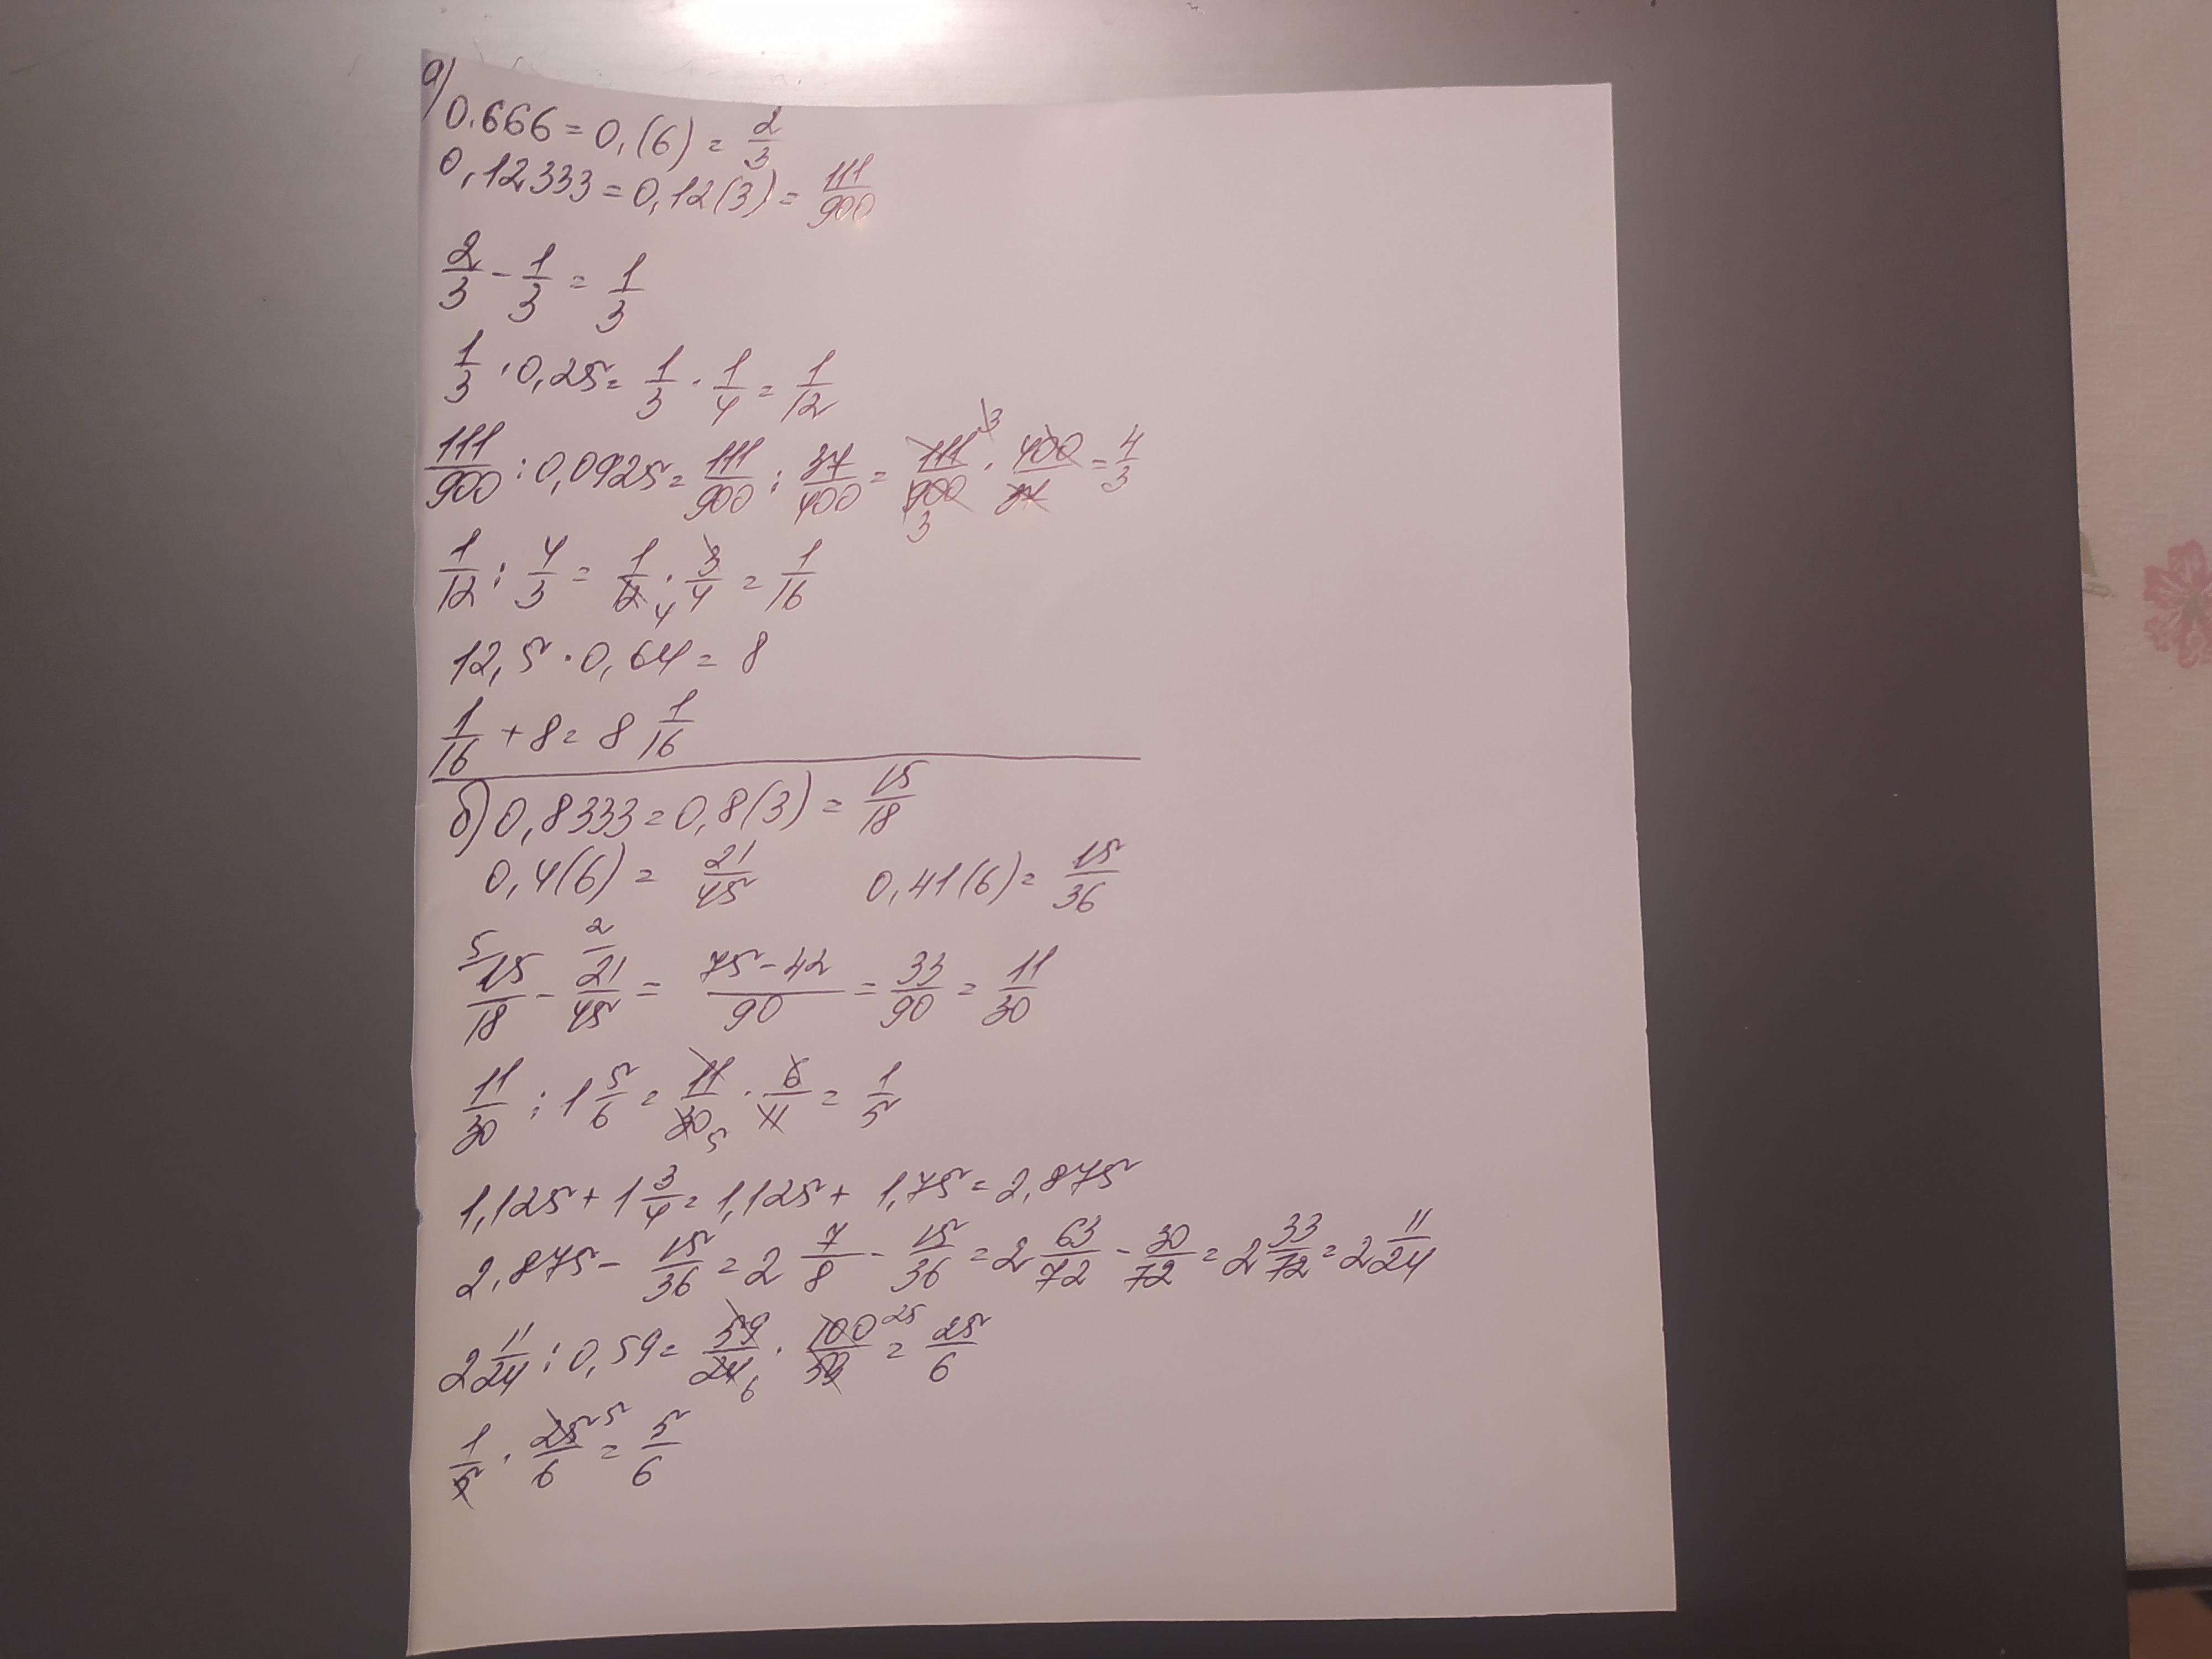 а) 0.666 = 0,(6) = 2/3
0,12333 = 0,12(3) = 111/900
2/3 - 1/3 = 1/3
1/3 · 0,25 = 1/3 · 1/4 = 1/12
111/900 : 0,0925 = 111/900 : 37/400 = 111 3/900 3 · 400/37 = 4/3
1/12 : 4/3 = 1/12 4 · 3/4 = 1/16
12,5 · 0,64 = 8
1/16 + 8 = 8 1/16
б) 0,8333 = 0,8(3) = 15/18
0,4(6) = 21/45 0,41(6) = 15/36
5/ 15/18 - 2/ 21/45 = 75-42/90 = 33/90 = 11/30
11/30 : 1 5/6 = 11/30 5 · 6/11 = 1/5
1,125 + 1 3/4 = 1,125 + 1,75 = 2,875
2,875 - 15/36 = 2 7/8 - 15/36 = 2 63/72 - 30/72 = 2 33/72 = 2 11/24
2 11/24 : 0,59 = 59/24 6 · 100 25/59 = 25/6
1/5 · 25 5/6 = 5/6